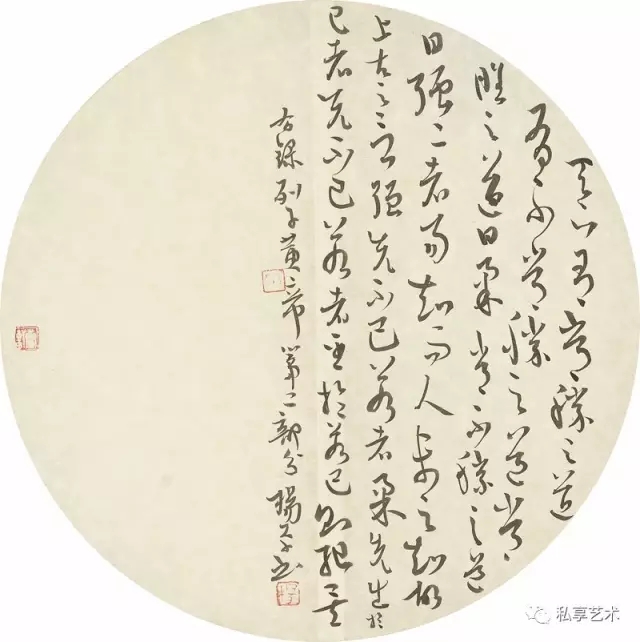 天下有常勝之道
有不常勝之道常
勝之道曰柔常不勝之道
曰强二者易知而人未之知故
上古之言强先不己若者柔先出於
己者先不己若者至於若己則殆矣
右録列子黄帝第二部分 楊書
私享艺术